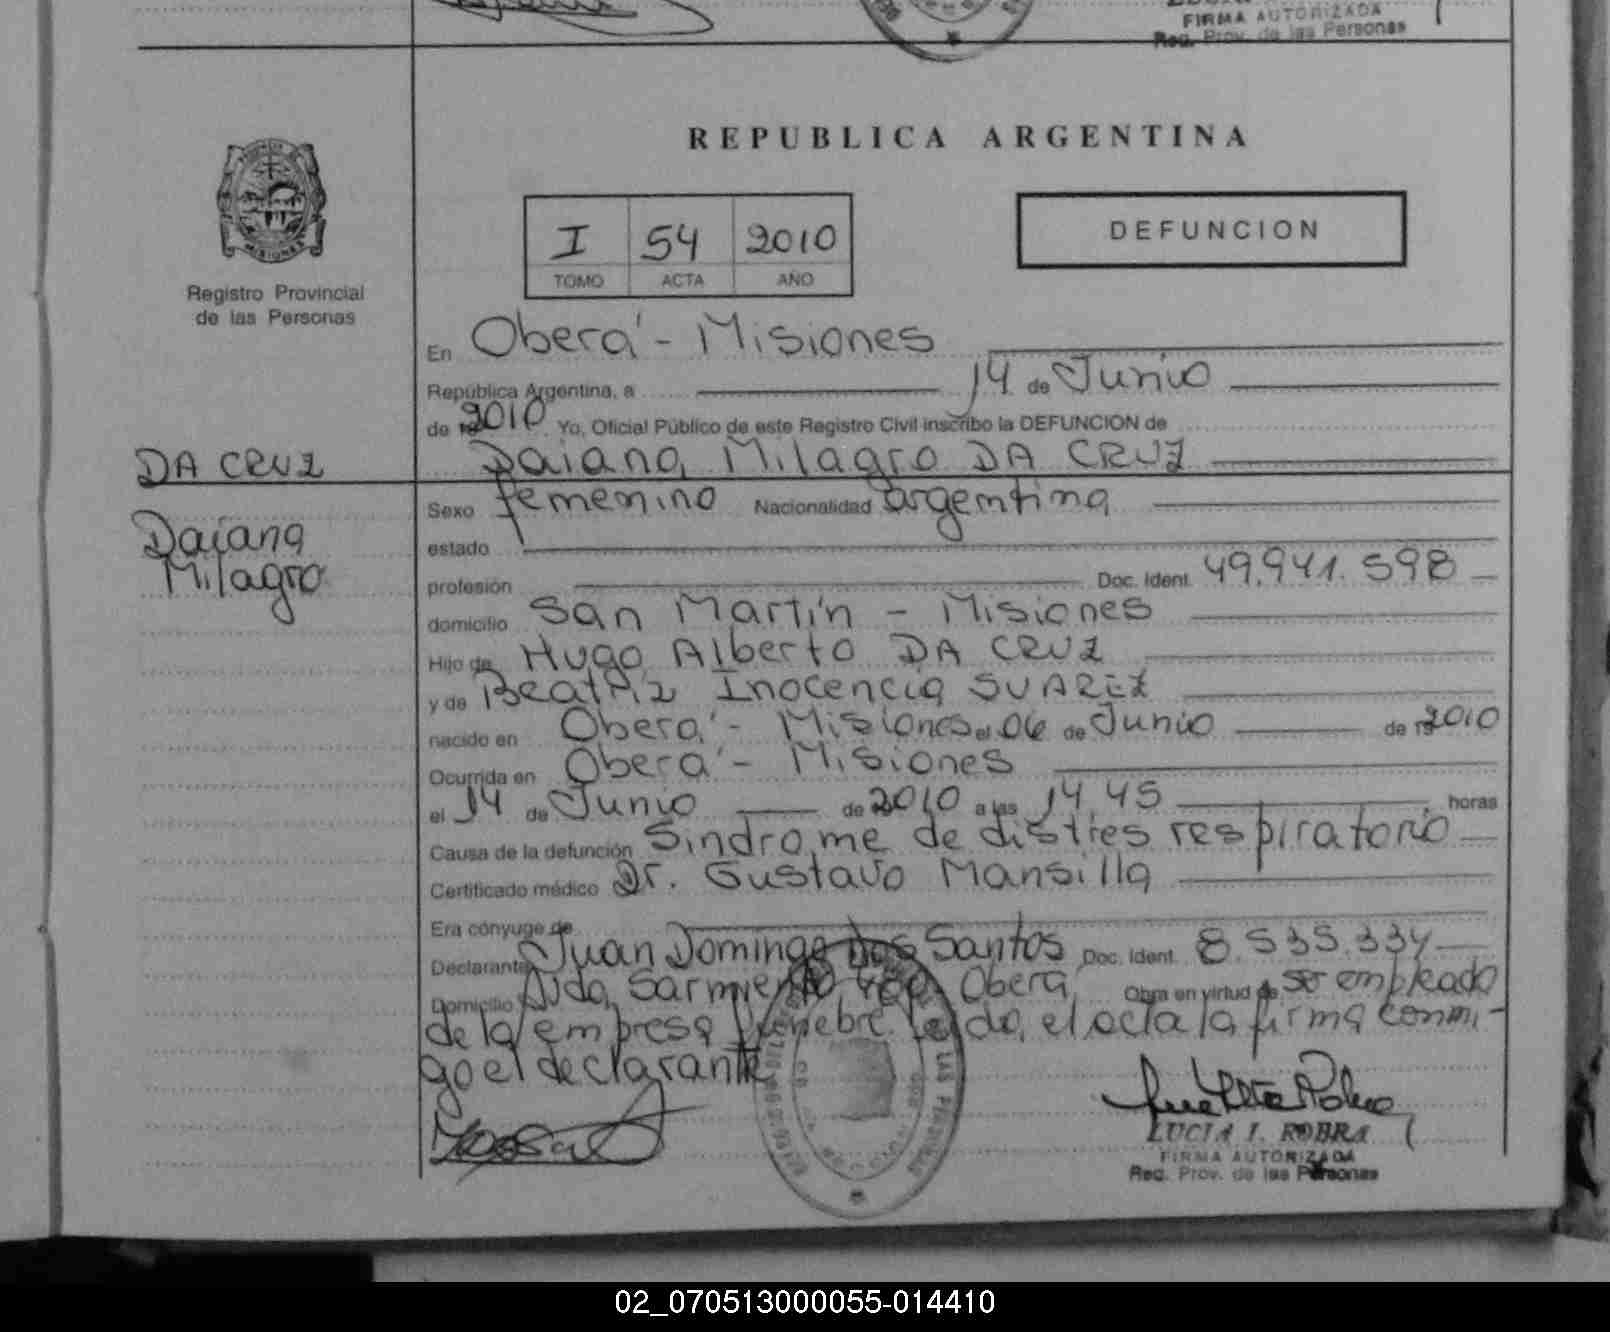 FIRMA AUTORIZADA
Reg. Prov. de las Personas
REPUBLICA ARGENTINA
MISIONES
Registro Provincial
de las Personas
I 54 2010
TOMO ACTA AÑO
DEFUNCION
En Oberá - Misiones
República Argentina, a 14 de Junio
de 19 2010 Yo, Oficial Público de este Registro Civil inscribo la DEFUNCION de
DA CRUZ
Daiana Milagro DA CRUZ
Daiana
Milagro
Sexo femenino Nacionalidad argentina
estado
profesión Doc. Ident. 49.941.598
domicilio San Martín - Misiones
Hijo de Hugo Alberto DA CRUZ
y de Beatriz Inocencia SUAREZ
nacido en Oberá - Misiones el 06 de Junio de 19 2010
Ocurrida en Oberá - Misiones
el 14 de Junio de 2010 a las 14,45 horas
Causa de la defunción Sindrome de distres respiratorio
Certificado médico Dr. Gustavo Mansilla
Era cónyuge de
Declarante Juan Domingo Dos Santos Doc. Ident. 8.535.334
Domicilio Avda. Sarmiento Oberá Obra en virtud de ser empleado
de la empresa funebre. Leida el acta la firma conmi-
go el declarante
LUCIA I. ROBRA
FIRMA AUTORIZADA
Reg. Prov. de las Personas
LAS PERSONAS
02_070513000055-014410